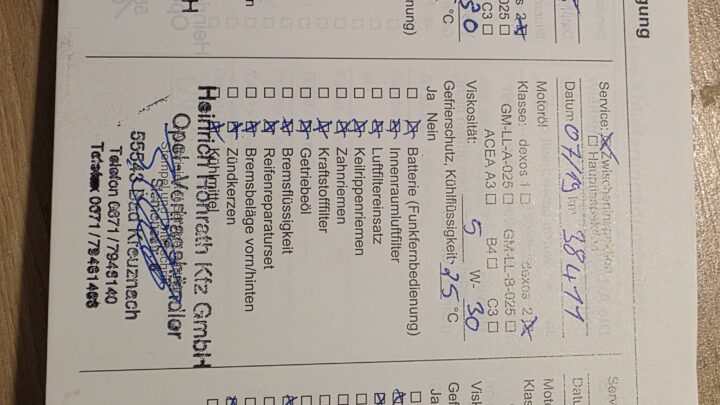 Service: Zwischeninspektion
Hauptinspektion
Datum 07/19 km 38411
Motoröl
Klasse: dexos 1 dexos 2
GM-LL-A-025 GM-LL-B-025
ACEA A3 B4 C3
Viskosität: 5 W- 30
Gefrierschutz, Kühlflüssigkeit- 25 °C
Ja Nein
Batterie (Funkfernbedienung)
Innenraumluftfilter
Luftfiltereinsatz
Keilrippenriemen
Zahnriemen
Kraftstofffilter
Getriebeöl
Bremsflüssigkeit
Reifenreparaturset
Bremsbeläge vorn/hinten
Zündkerzen
Kühlmittel
Heinrich Honrath Kfz GmbH
Opel-Vertragshändler
55543 Bad Kreuznach
Telefon 0671/7946140
Telefax 0671/79461466